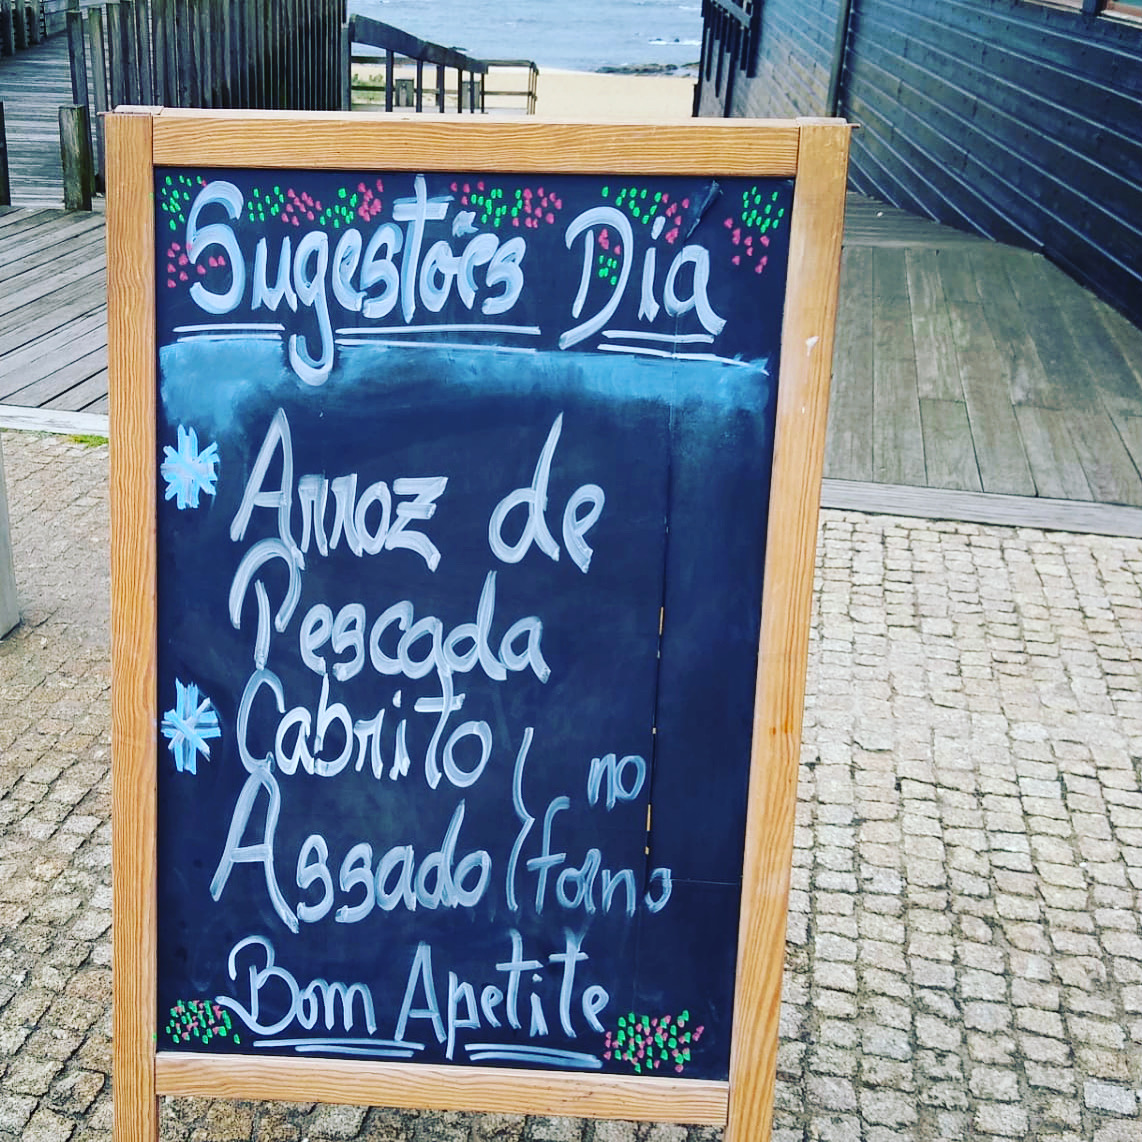 Sugestões Dia
Arroz de
Pescada
Cabrito
Assado
no
forno
Bom Apetite